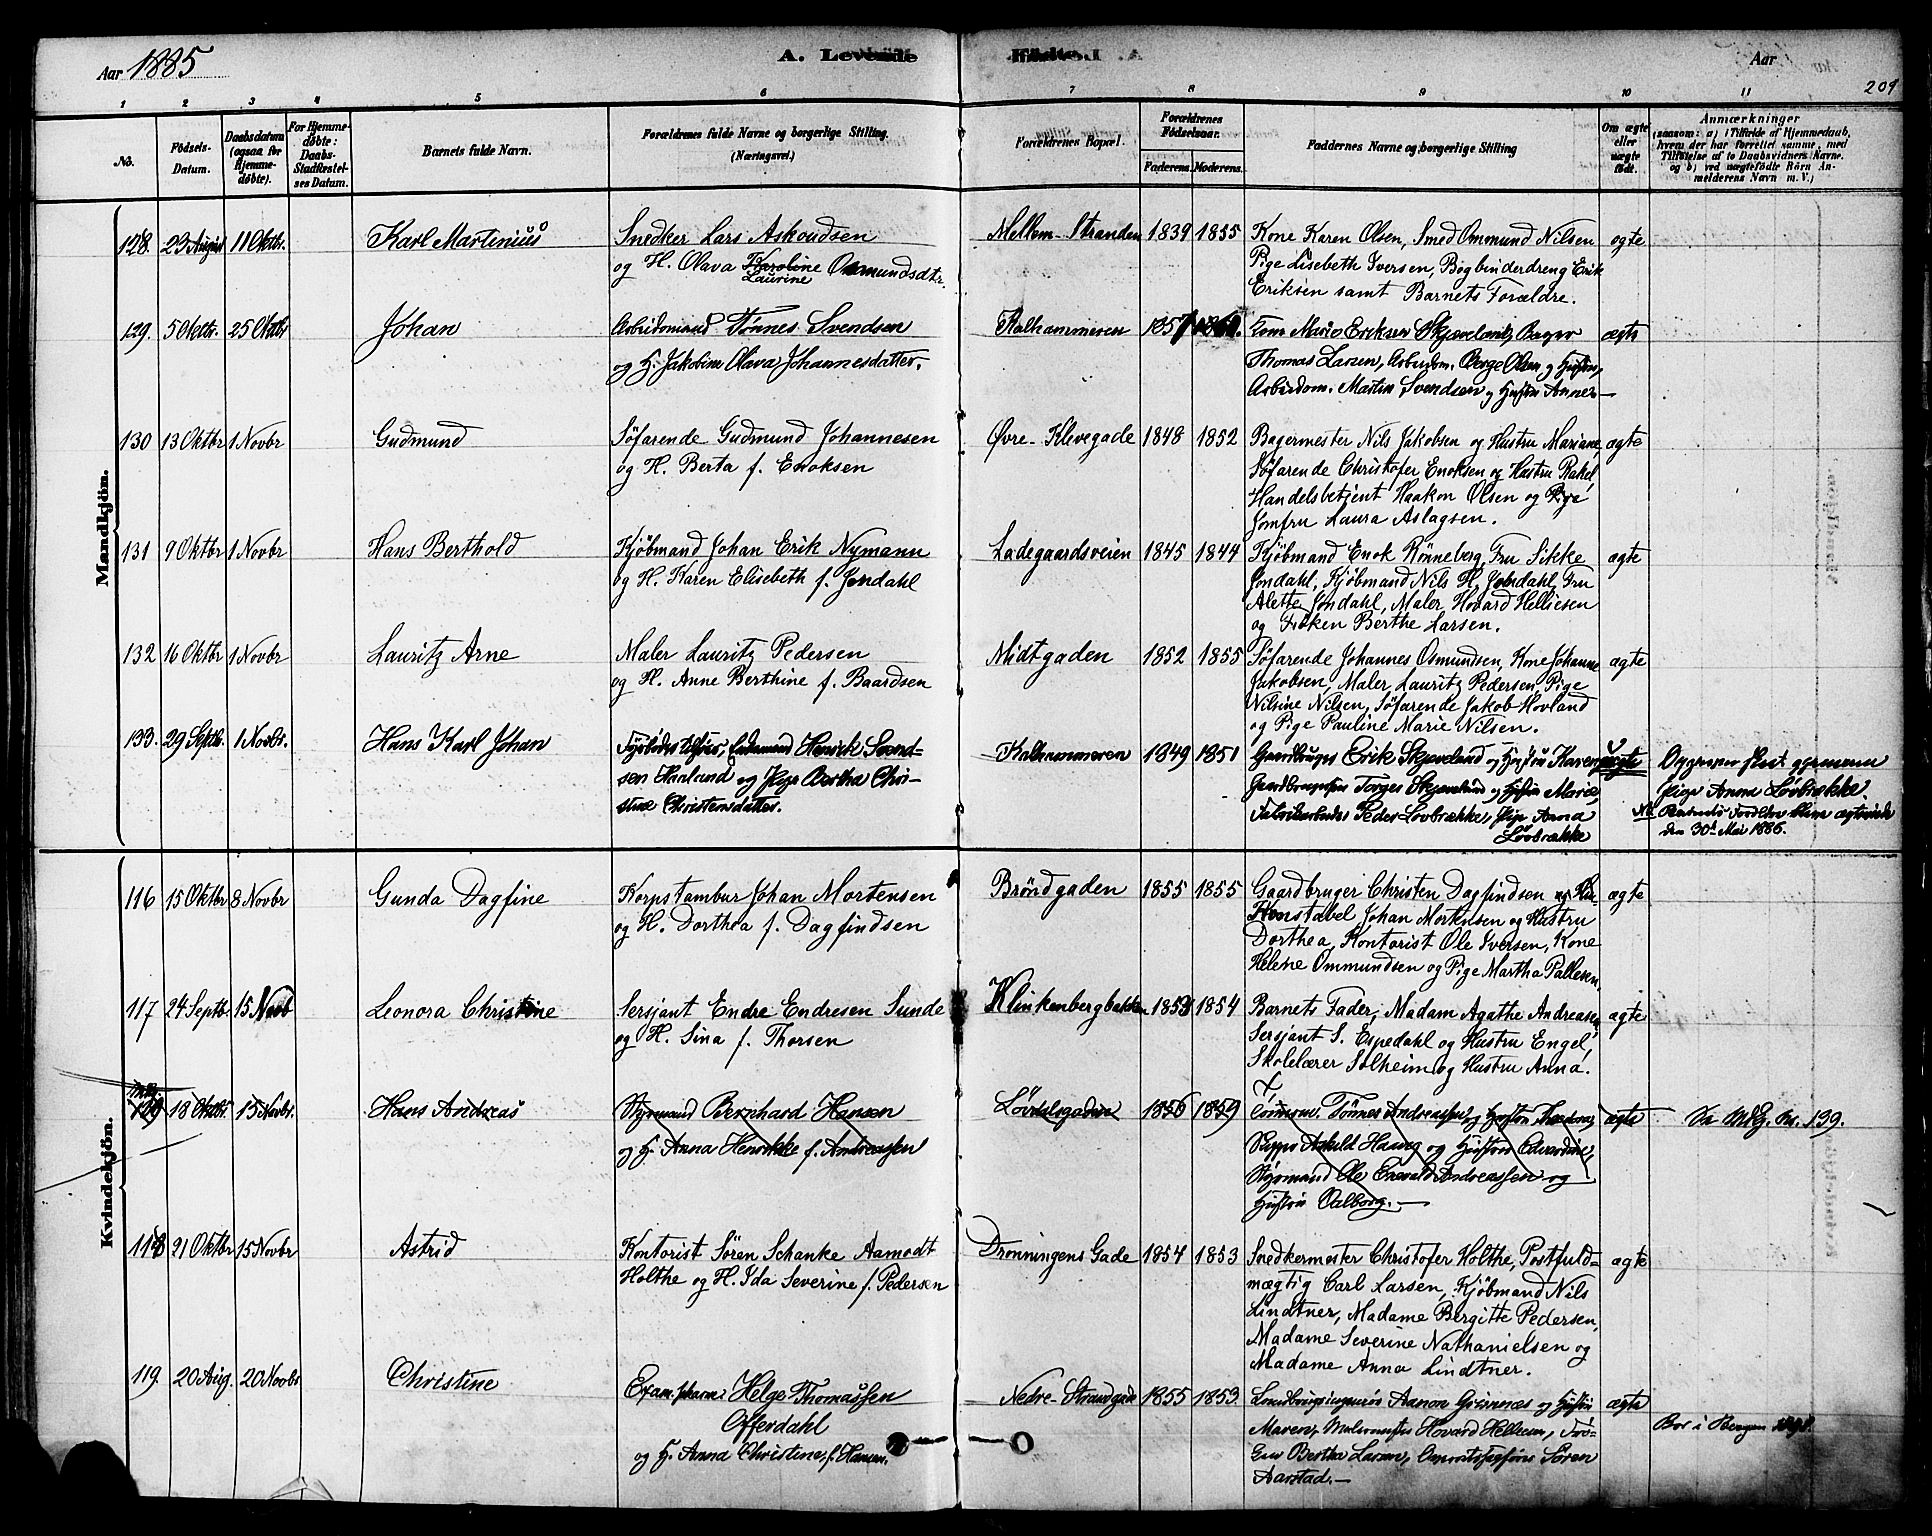 Aar 1885
A. Levende
Fødte.
Aar
209
1 2 3 4 5 6 7 8 9 10 11
No.
Fødsels-Datum.
Daabsdatum (ogsaa for Hjemmedøbte).
For Hjemmedøbte: Daabs-Stadfæstelses Datum.
Barnets fulde Navn.
Forældrenes fulde Navne og borgerlige Stilling. (Næringsvei.)
Forældrenes Bopæl.
Forældrenes Fødselsaar.
Faderens. Moderens.
Faddernes Navne og borgerlige Stilling
Om ægte eller uægte født.
Anmærkninger
(saasom: a) i Tilfælde af Hjemmedaab, hvem der har forrettet samme, med Tilføielse af to Daabsvidners Navne. og b) ved uægtefødte Børn Anmelderens Navn m. V.)
Mandkjön.
128. 23 August 11 Oktbr. Karl Martinius Snedker Lars Askoudsen Mellem-Stranden 1839 1855 Kone Karen Olsen, Smed Ommund Nilsen ægte
og H. Olava Karoline Osmundsdtr. Pige Lisebeth Iversen, Bogbinderdreng Erik
Laurine Eriksen samt Barnets Forældre.
129. 5 Oktbr. 25 Oktbr Johan Arbeidsmand Tönnes Svendsen Kalhammeren 1857 Kone Marie Eriksen Skjæveland, Bager ægte
og H. Jakobine Olava Johannesdatter. Thomas Larsen, Arbeidsm. Berge Olsen og Hustru,
Arbeidsm. Martin Svendsen og Hustru Anne
130 13 Oktbr 1 Novbr Gudmund Søfarende Gudmund Johannesen Øvre-Klevegade 1848 1852 Bagermester Nils Jakobsen og Hustru Mariane, ægte
og H. Berta f. Enoksen Søfarende Christofer Enoksen og Hustru Rakel
Handelsbetjent Haakon Olsen og Pige
Jomfru Laura Aslagsen.
131 9 Oktbr 1 Novbr Hans Berthold Kjøbmand Johan Erik Nymann Ladegaardsveien 1845 1844 Kjøbmand Enok Rönneberg, Fru Sikke ægte
og H. Karen Elisebeth f. Jondahl Jondahl, Kjøbmand Nils H. Jondahl, Fru
Alette Jondahl, Maler Hovard Helliesen
og Frøken Berthe Larsen.
132 16 Oktbr 1 Novbr Lauritz Arne Maler Lauritz Pedersen Midtgaden 1852 1855 Søfarende Johannes Osmundsen, Kone Johanne ægte
og H. Anne Berthine f. Baardsen Jakobsen, Maler Lauritz Pedersen, Pige
Nilsine Nilsen, Søfarende Jakob Hovland
og Pige Pauline Marie Nilsen.
133. 29 Septbr. 1 Novbr. Hans Karl Johan Henrik Svendsen Kalhammeren 1849 1851 Gaardbruger Erik Skjæveland og Hustru Karen, uægte
Haaland og Pige Bertha Christine Gaardbruger Torger Skjæveland og Hustru Marie,
Christensdatter. Fabrikarbeider Peder Løvbrække, Pige Anna
Løvbrække
Pige Anna Løvbrække.
NB. Barnets Forældre bleve ægteviede
den 30te Mai 1886.
Kvindekjön.
116 15 Oktbr 8 Novbr Gunda Dagfine Korpstambur Johan Mortensen Brøndgaden 1855 1855 Gaardbruger Christen Dagfindsen ægte
og H. Dorthea f. Dagfindsen Konstabel Johan Mortensen og Hustru
Dorthea, Kontorist Ole Iversen, Kone
Helene Ommundsen og Pige Martha Pallesen.
117 24 Septbr 15 Novb Leonora Christine Sersjant Endre Endresen Sunde Klinkenbergbakken 1853 1854 Barnets Fader, Madam Agathe Andreasen, ægte
og H. Sina f. Thorsen Sersjant S. Espedahl og Hustru Engel,
Skolelærer Solheim og Hustru Anna.
18 Oktbr. 15 Novbr. Hans Andreas Styrmand Bernhard Hansen Løvdalsgaden 1856 1859 Tönnes Andreassen og Hustru ægte Se Mkj. No. 139.
og H. Anna Henrikke f. Andreassen Skipper Askild Haaveg og Hustru Edvardine,
Styrmand Ole Enevald Andreassen og
Hustru Valborg.
118 21 Oktbr 15 Novbr Astrid Kontorist Sören Schanke Aamodt Dronningens Gade 1854 1853 Snedkermester Christofer Holthe, Postfuld- ægte
Holthe og H. Ida Severine f. Pedersen mægtig Carl Larsen, Kjøbmand Nils
Lindtner, Madame Bergitte Pedersen,
Madame Severine Nathanielsen og
Madame Anna Lindtner.
119 20 Aug. 20 Novbr Christine Exam. pharm. Helge Thomassen Nedre-Strandgade 1855 1853. Landbrugsingeniør Aanon Grimnæs og Hustru ægte
Offerdahl Maren, Malermester Hovard Helliesen, Frø-
og H. Anna Christine, f. Hansen. ken Bertha Larsen, Søren
Aarstad.
Bor i Bergen 1898.